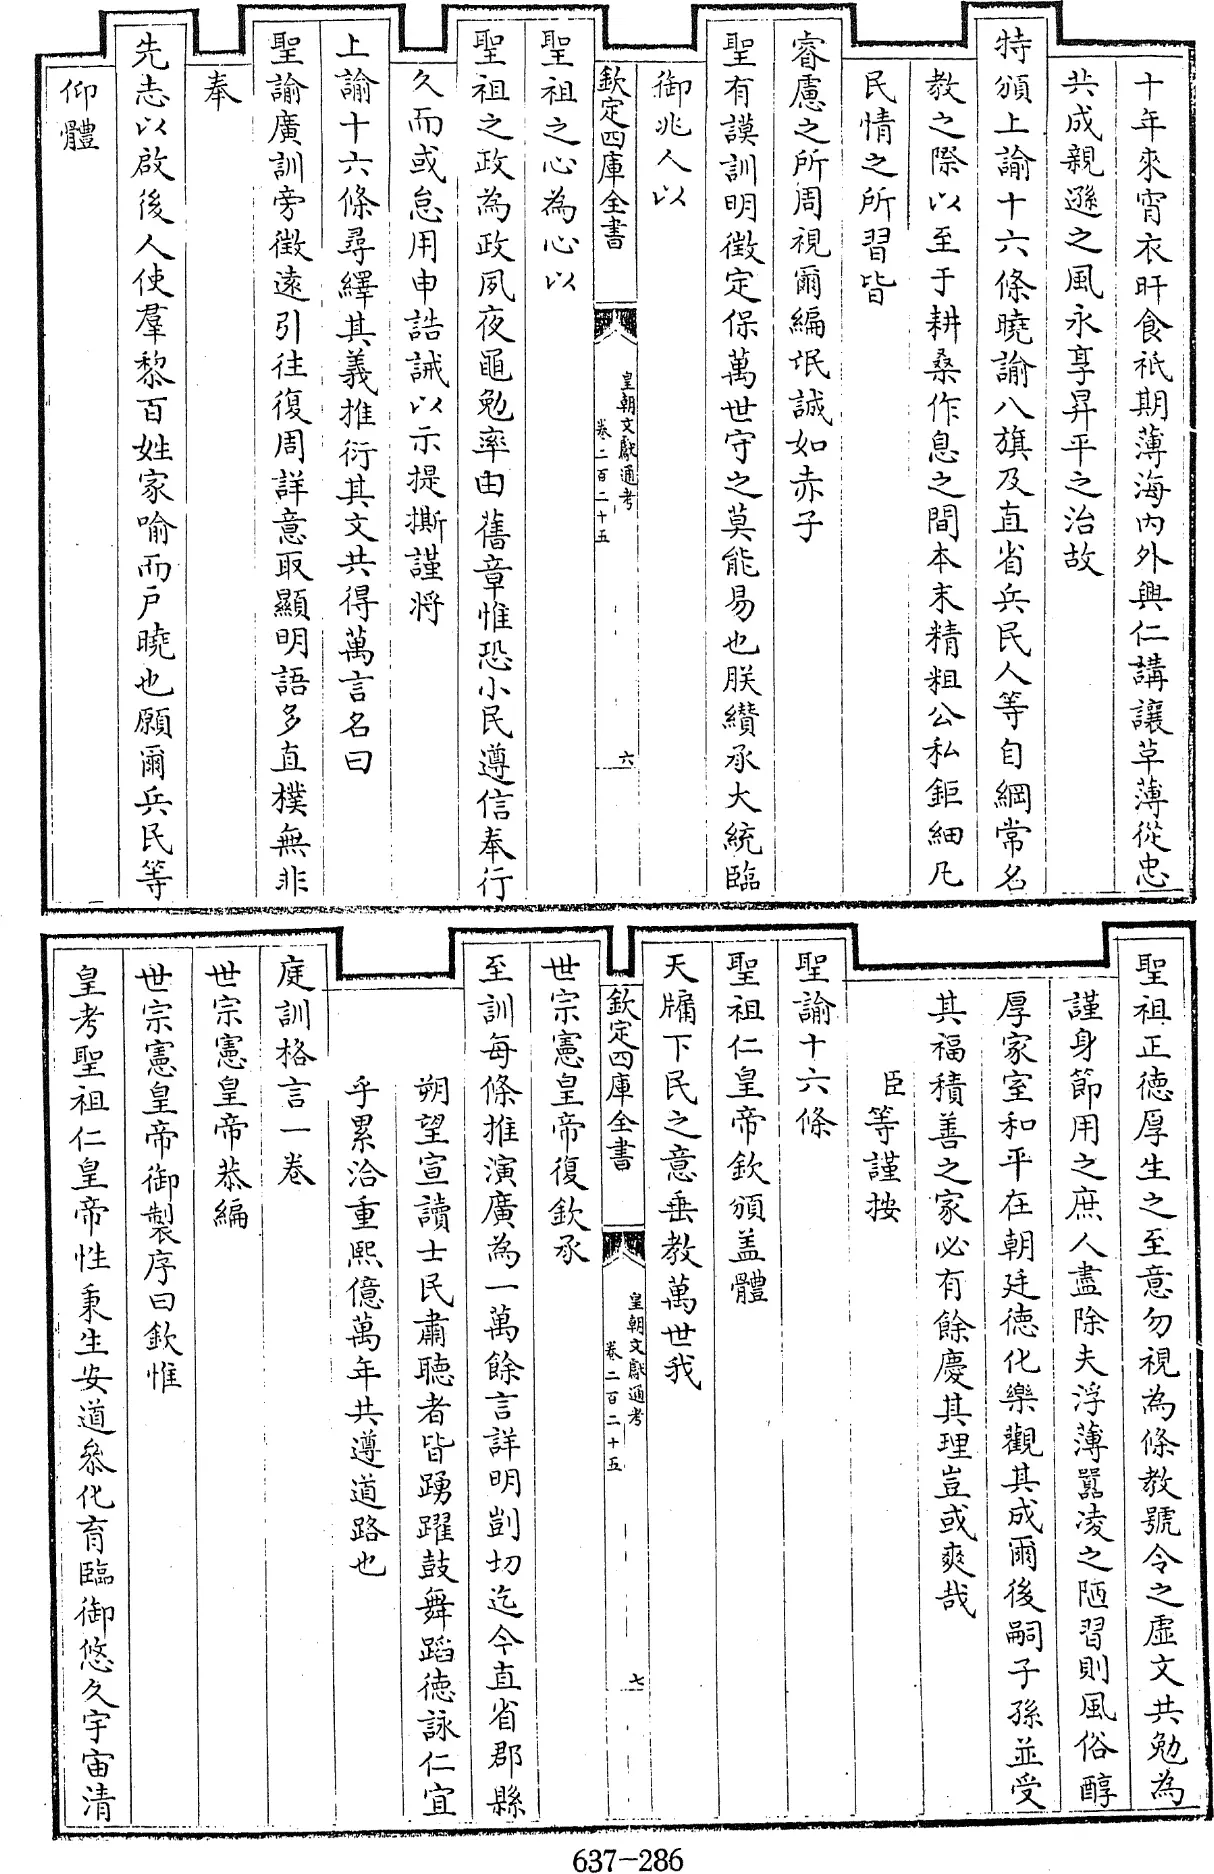 十年來宵衣旰食祇期薄海內外興仁講讓革薄從忠
共成親遜之風永享昇平之治故
特頒上諭十六條曉諭八旗及直省兵民人等自綱常名
教之際以至于耕桑作息之間本末精粗公私鉅細凡
民情之所習皆
睿慮之所周視爾編氓誠如赤子
聖有謨訓明徵定保萬世守之莫能易也朕纘承大統臨
御兆人以
欽定四庫全書
皇朝文獻通考
卷二百二十五
六
聖祖之心為心以
聖祖之政為政夙夜黽勉率由舊章惟恐小民遵信奉行
久而或怠用申誥誡以示提撕謹將
上諭十六條尋繹其義推衍其文共得萬言名曰
聖諭廣訓旁徵遠引往復周詳意取顯明語多直樸無非
奉
先志以啟後人使羣黎百姓家喻而戶曉也願爾兵民等
仰體
聖祖正德厚生之至意勿視為條教號令之虛文共勉為
謹身節用之庶人盡除夫浮薄囂凌之陋習則風俗醇
厚家室和平在朝廷德化樂觀其成爾後嗣子孫並受
其福積善之家必有餘慶其理豈或爽哉
臣等謹按
聖諭十六條
聖祖仁皇帝欽頒蓋體
天牖下民之意垂教萬世我
欽定四庫全書
皇朝文獻通考
卷二百二十五
七
世宗憲皇帝復欽承
至訓每條推演廣為一萬餘言詳明剴切迄今直省郡縣
朔望宣讀士民肅聽者皆踴躍鼓舞蹈德詠仁宜
乎累洽重熙億萬年共遵道路也
庭訓格言一卷
世宗憲皇帝恭編
世宗憲皇帝御製序曰欽惟
皇考聖祖仁皇帝性秉生安道叅化育臨御悠久宇宙清
637-286